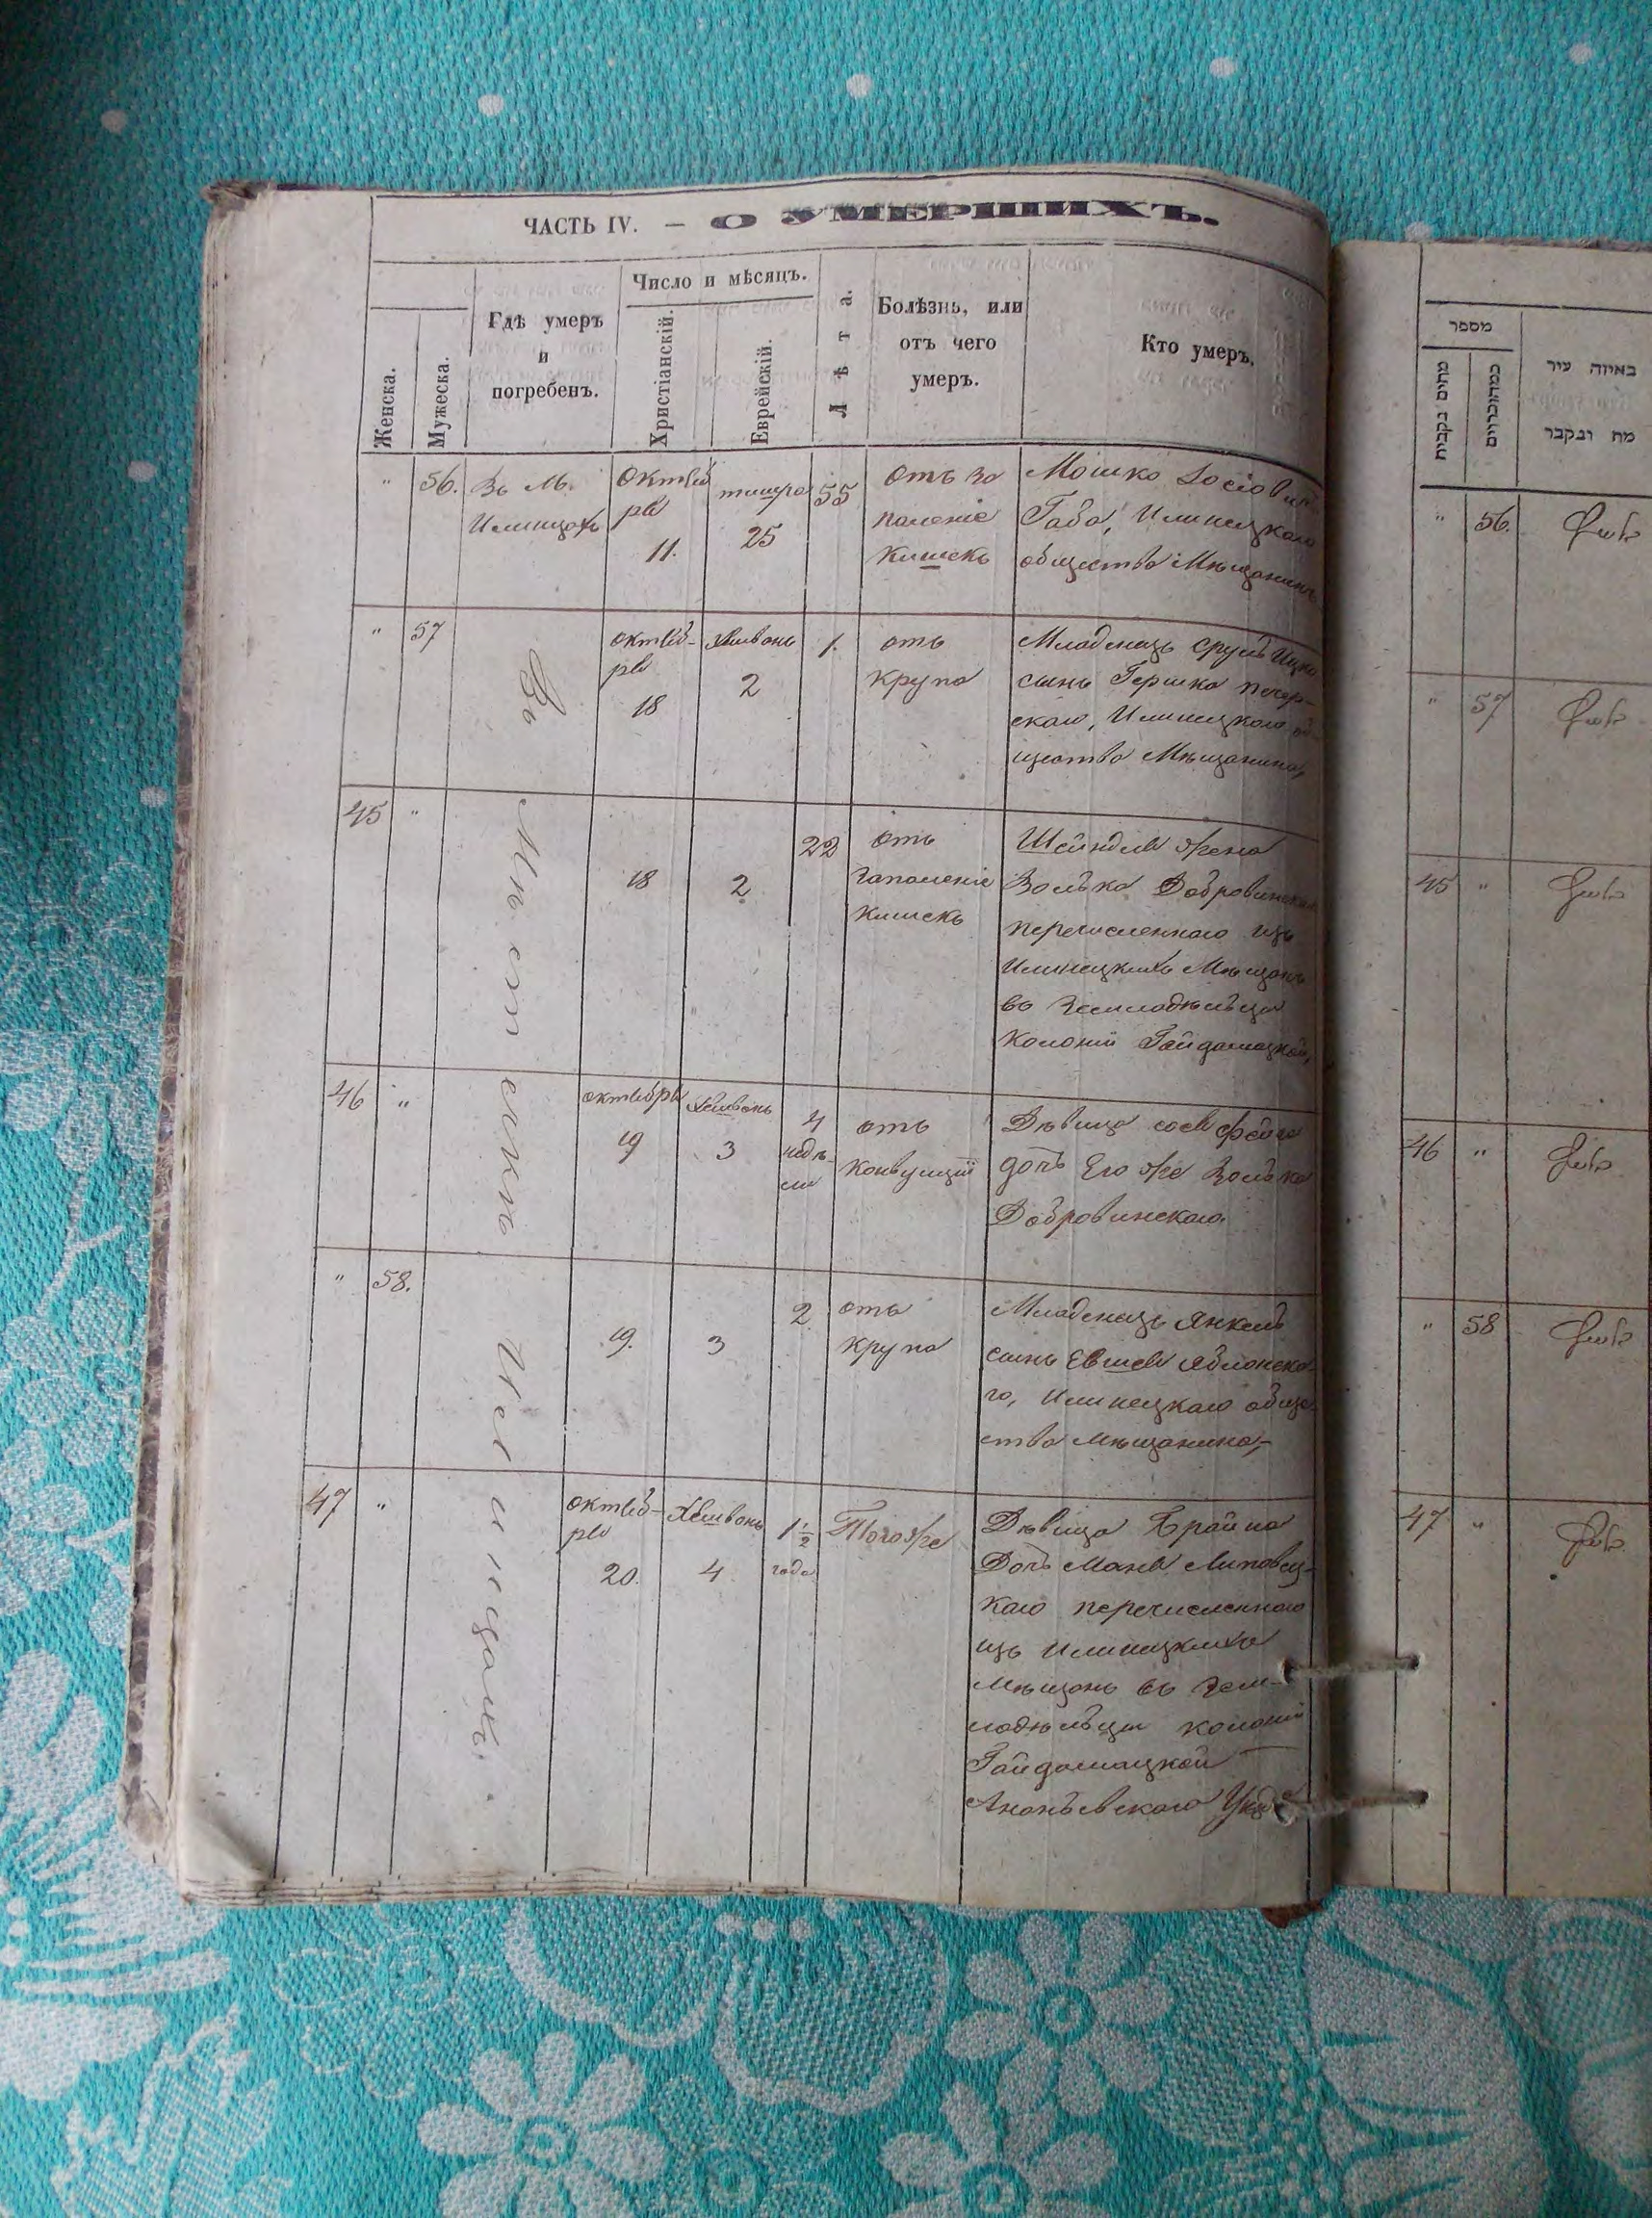 ЧАСТЬ IV. — О УМЕРШИХЪ.
Женска.
Мужеска.
Гдѣ умеръ
и
погребенъ.
Число и мѣсяцъ.
Христіанскій.
Еврейскій.
Лѣта.
Болѣзнь, или
отъ чего
умеръ.
Кто умеръ.
" 56. Въ М.
Илинцахъ
Октяб
ря
11.
тишра
25
55
Отъ за
паленіе
кишекъ
Мошко
Габа, Илинецкаго
общества Мѣщанинъ
" 57
октяб-
ря
18
Хешвонъ
2
1.
отъ
крупа
Младенецъ Сруль Ицко
сынъ Гершка Печер-
скаго, Илинецкаго об-
щества Мѣщанина,
45 "
18
2
22
отъ
запаленіе
кишекъ
Шейндля жена
Волька Добровинскаго
перечисленнаго изъ
Илинецкихъ Мѣщанъ
въ Земледѣльцы
Колоніи Гайдамацкой,
46 "
октября
19
Хешвонъ
3
4
недѣ-
ли
отъ
Конвульціи
Дѣвица
дочь Его же Волька
Добровинскаго.
" 58.
19.
3
2
отъ
крупа
Младенецъ Янкель
сынъ Евшея Яблонска-
го, Илинецкаго обще-
ства мѣщанина,-
47 "
октяб-
ря
20.
Хешвонъ
4
1 1/2
года
Тогоже
Дѣвица Брайна
Дочь Маня Липовец-
каго перечисленнаго
изъ Илинецкихъ
Мѣщанъ въ Зем-
ледѣльцы колоніи
Гайдамацкой
Ананьевскаго Уѣзда
Въ Мѣстечкѣ Илинцахъ.
מספר
מתים נקבות
באיזה עיר
מת ונקבר
" 56.
" 57
45 "
46 "
" 58
47 "